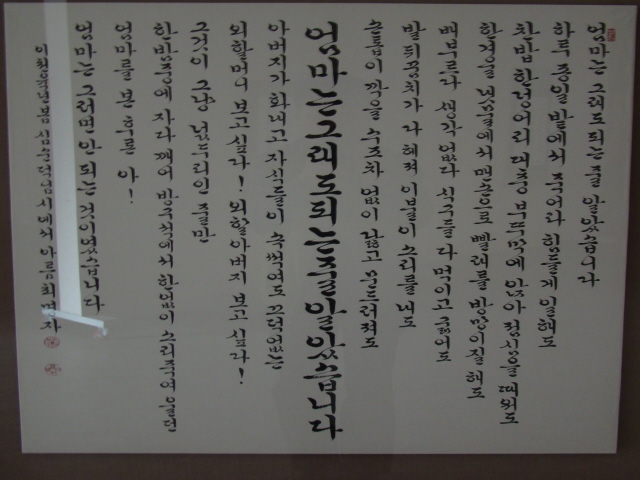 엄마는 그래도 되는 줄 알았습니다
하루 종일 밭에서 죽어라 힘들게 일해도
찬밥 한 덩어리 대충 부뚜막에 앉아 점심을 때워도
한겨울 냇물에서 맨손으로 빨래를 방망이질 해도
배부르다 생각 없다 식구들 다 먹이고 굶어도
발뒤꿈치가 다 헤져 이불이 소리를 내도
손톱이 깎을 수조차 없이 닳고 문드러져도
엄마는 그래도 되는 줄 알았습니다
아버지가 화내고 자식들이 속 썩여도 끄떡없는
외할머니 보고 싶다! 외할아버지 보고 싶다!
그것이 그냥 넋두리인 줄만
한밤중에 자다 깨어 방구석에서 한없이 소리 죽여 울던
엄마를 본 후론 아!
엄마는 그러면 안 되는 것이었습니다
심순덕님 시에서 아름